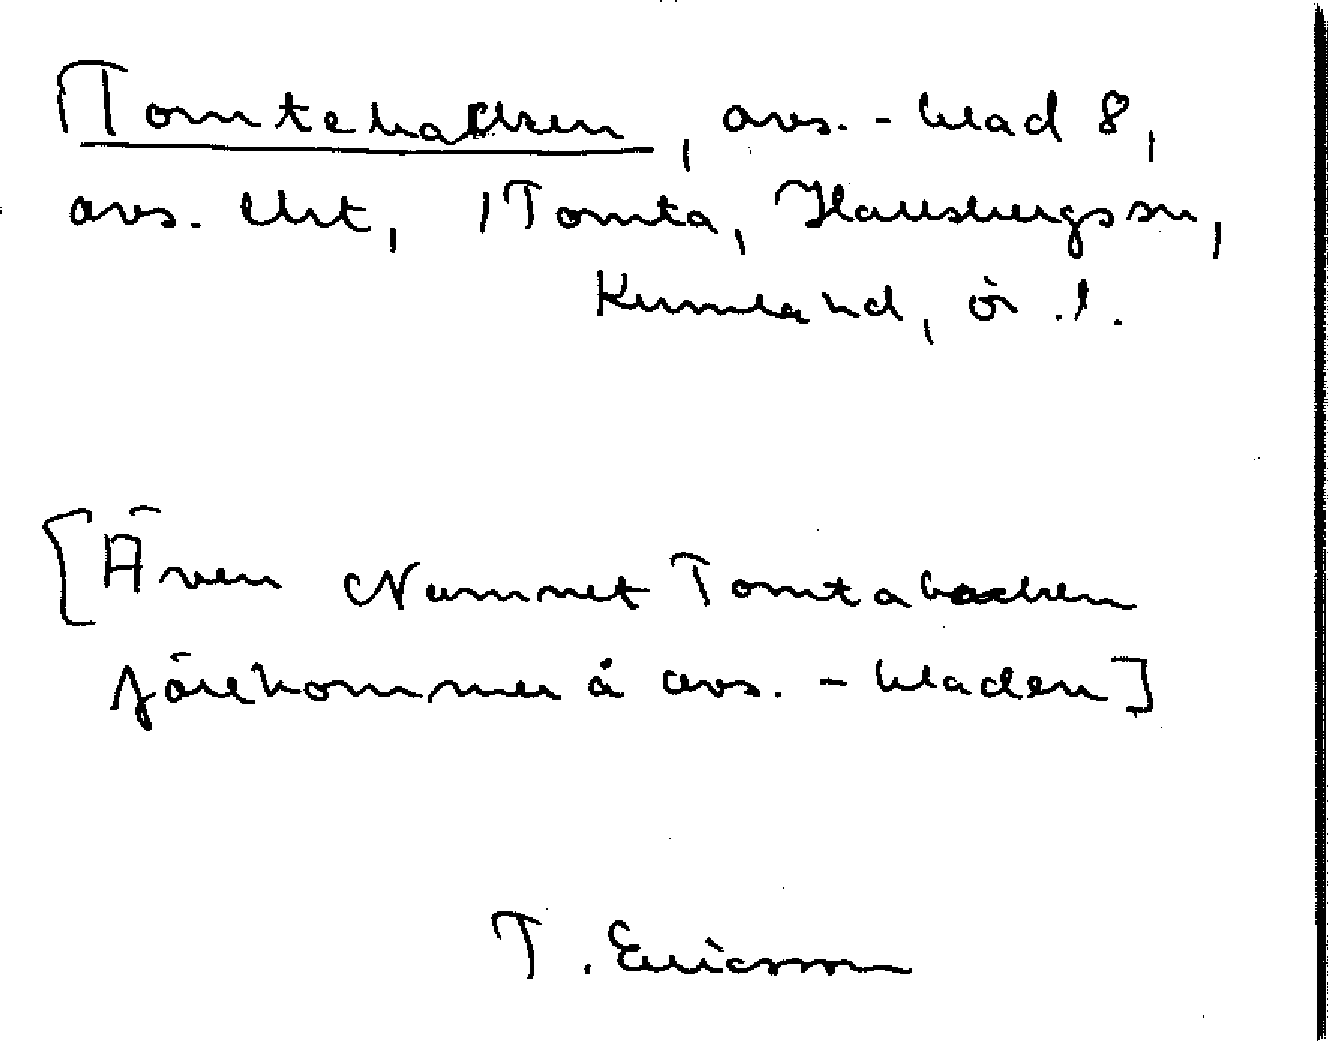 Tomtebacken, avs.-blad 8,
avs. Ekt, /Tomta, Hallsbergs sn,
Kumla hd, ör. l.
[Även Namnet Tomtabacken
förekommer å avs.-bladen]
T. Ericsson